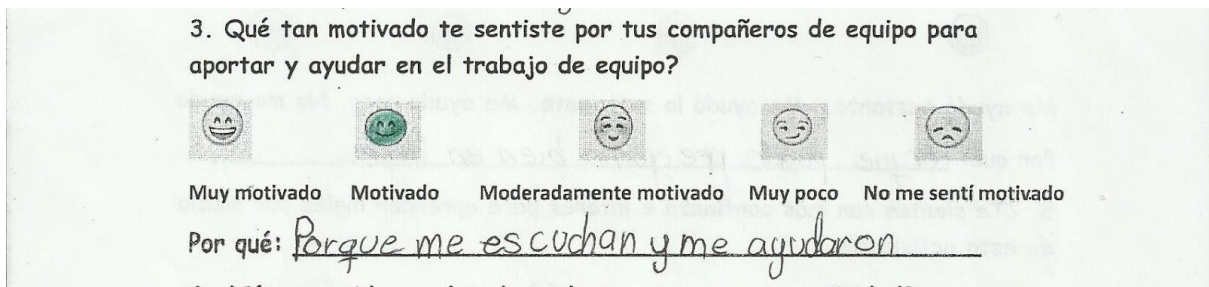 3. Qué tan motivado te sentiste por tus compañeros de equipo para
aportar y ayudar en el trabajo de equipo?
Muy motivado Motivado Moderadamente motivado Muy poco No me sentí motivado
Por qué: Porque me escuchan y me ayudaron